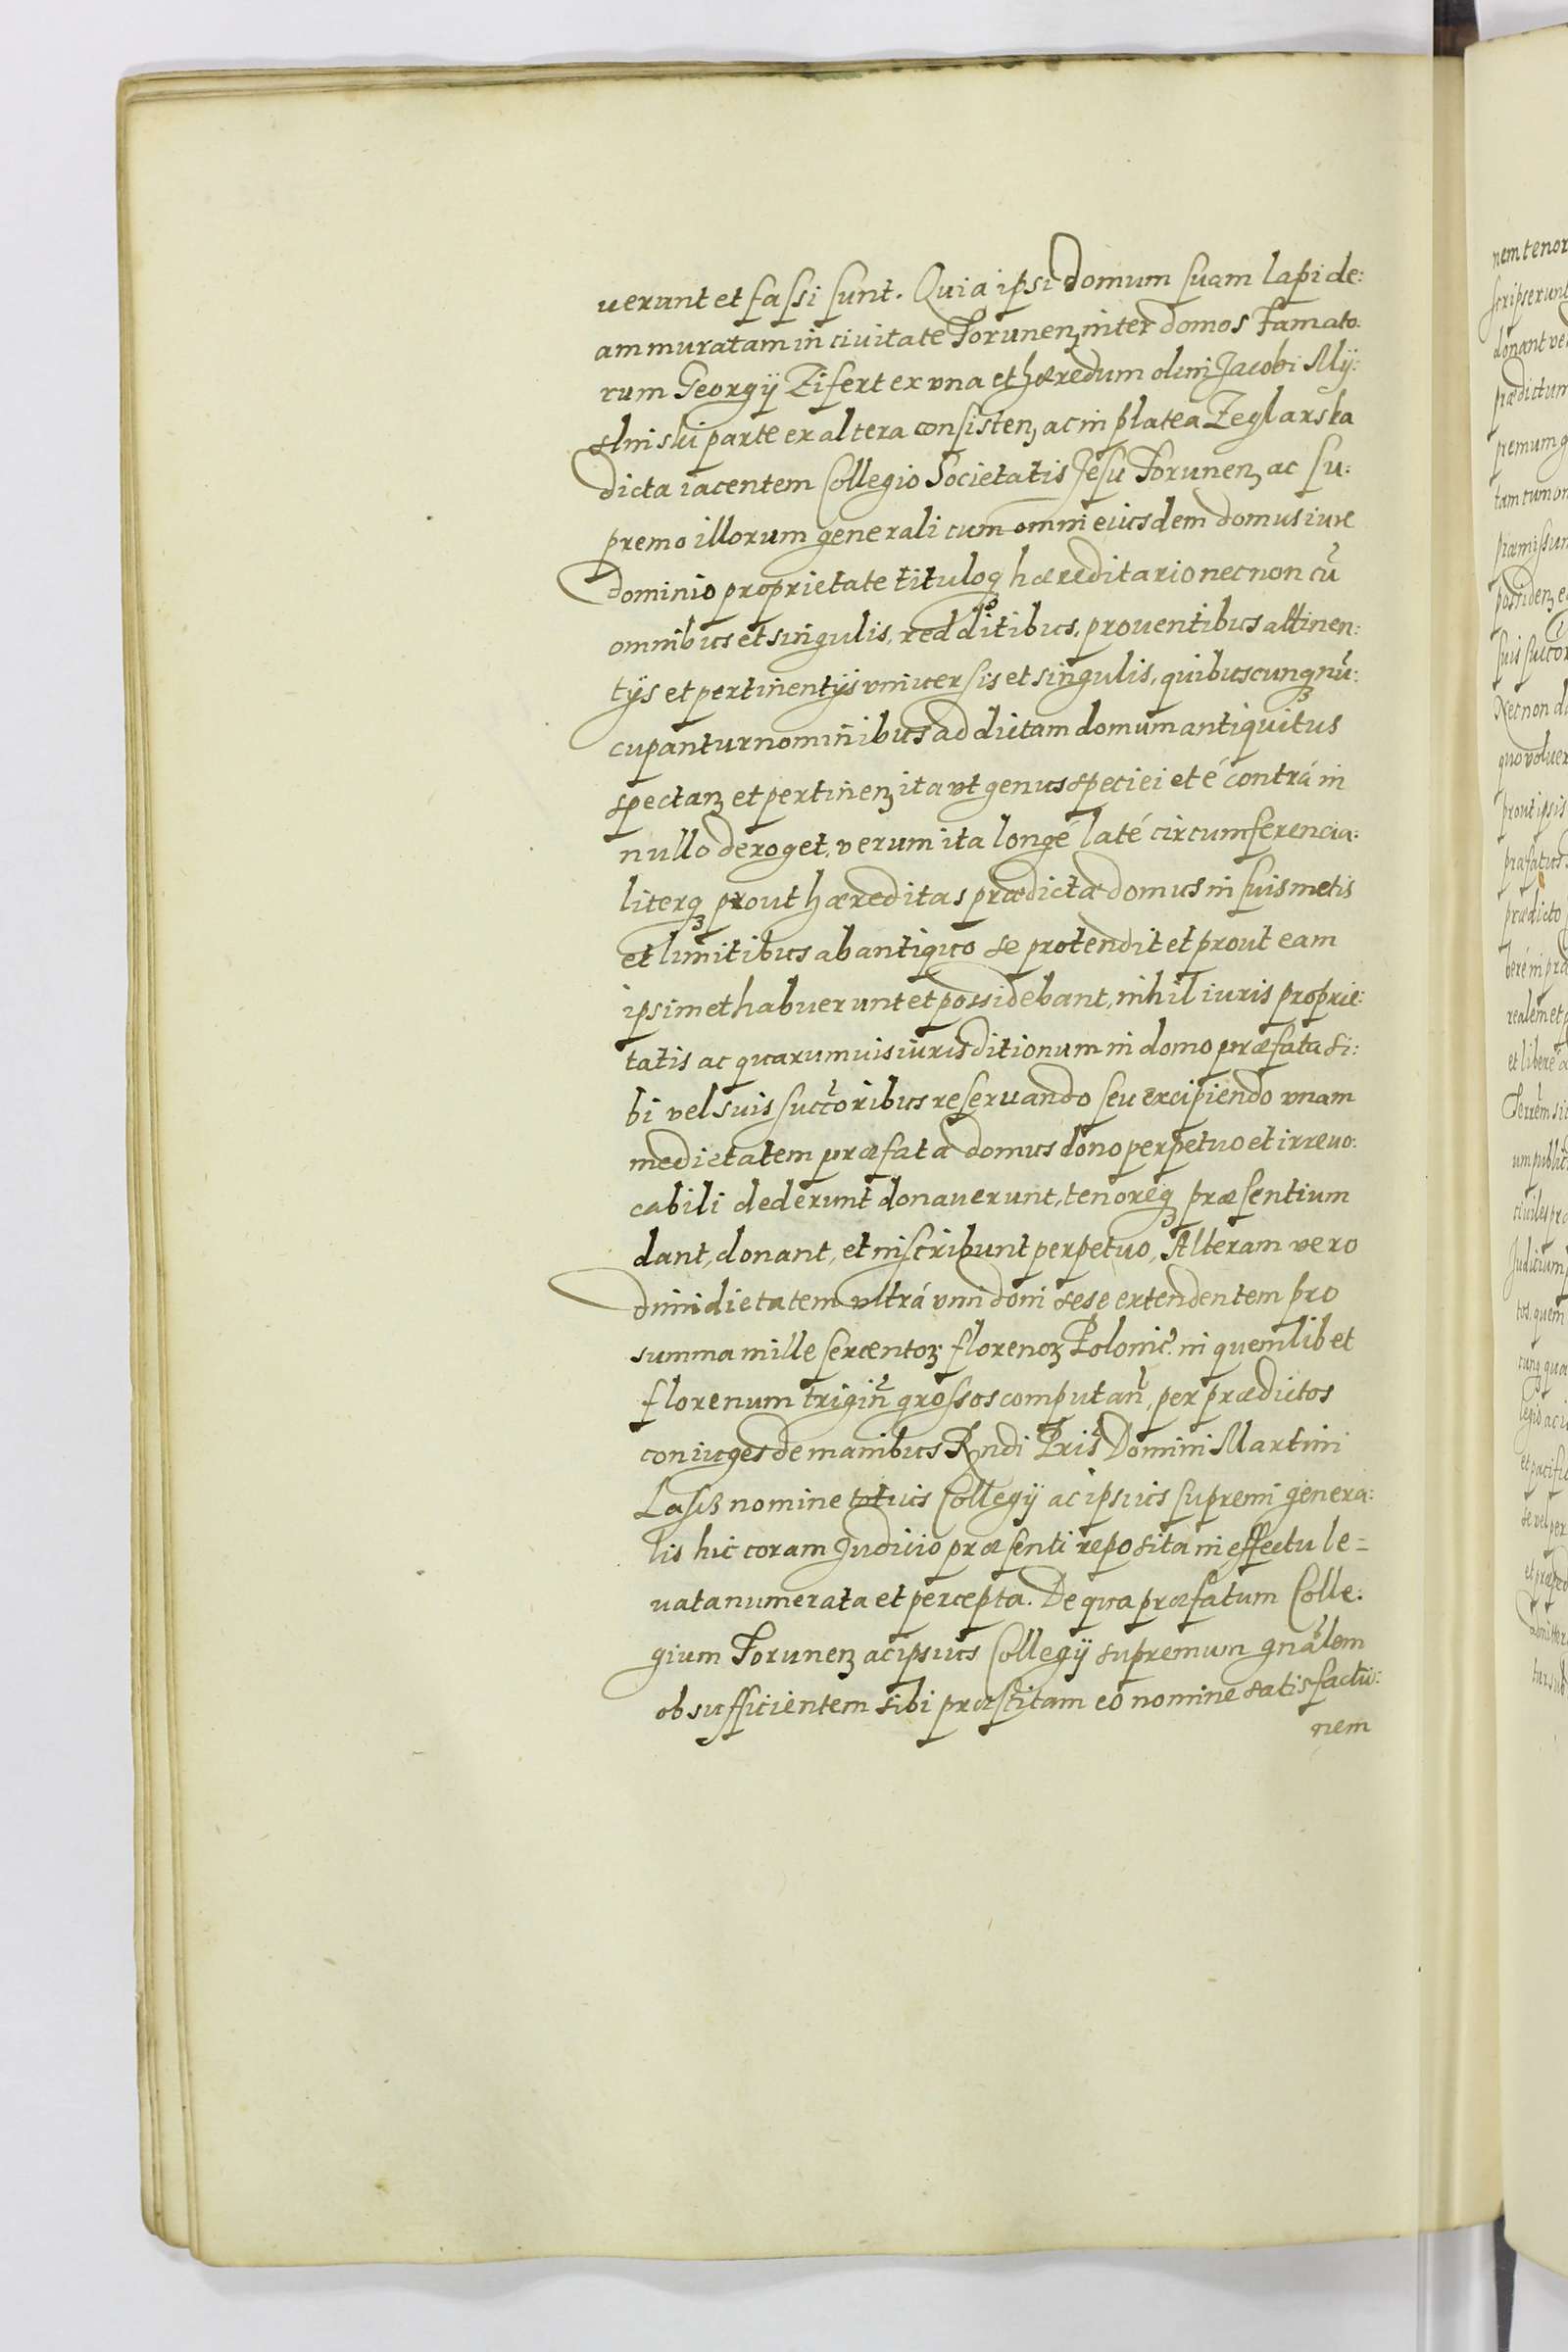 uerunt et fassi sunt. Quia ipsi domum suam lapide:
am muratam in ciuitate Torunenȝ inter domos Famato:
rum Georgÿ Zifert ex vna et hæredum olim Jacobi Mÿ:
slinski parte ex altera consistenȝ ac in platea Zeglarska
dicta iacentem Collegio Societatis Jesu Torunenȝ ac su:
premo illorum generali cum omni eiusdem domus iure
dominio proprietate tituloqȝ hæreditario necnon cũ
omnibus et singulis, redditibus, prouentibus attinen:
tÿs et pertinentÿs vniuersis et singulis, quibuscunqȝ nũ:
cupantur nominibus ad dictam domum antiquitus
spectanȝ et pertinenȝ ita vt genus speciei et é contrá in
nullo deroget, verum ita longé laté circumferencia:
literqȝ prout hæreditas prædictæ domus in suis metis
et limitibus ab antiquo se protendit et prout eam
ipsimet habuerunt et possidebant, nihil iuris proprie:
tatis ac quarumuis iurisditionum in domo præfata si:
bi vel suis succ̃oribus reseruando seu excipiendo vnam
medietatem præfatæ domus dono perpetuo et irreuo:
cabili dederunt donauerunt, tenoreqȝ præsentium
dant, donant, et inscribunt perpetuo, Alteram vero
dimidietatem vltrá vim doni sese extendentem pro
summa mille sexcentoȝ florenoȝ Polonic̃. in quemlibet
florenum trigiñ grossos computañ, per prædictos
coniuges de manibus Rndi Pris Domini Martini
Lasȝ nomine totius Collegÿ ac ipsius supremi genera:
lis hic coram Judicio præsenti reposita in effectu le=
uata numerata et percepta. De qua præfatum Colle:
gium Torunenȝ ac ipsius Collegÿ supremum gnãlem
ob sufficientem sibi præstitam eo nomine satisfactio:
nem